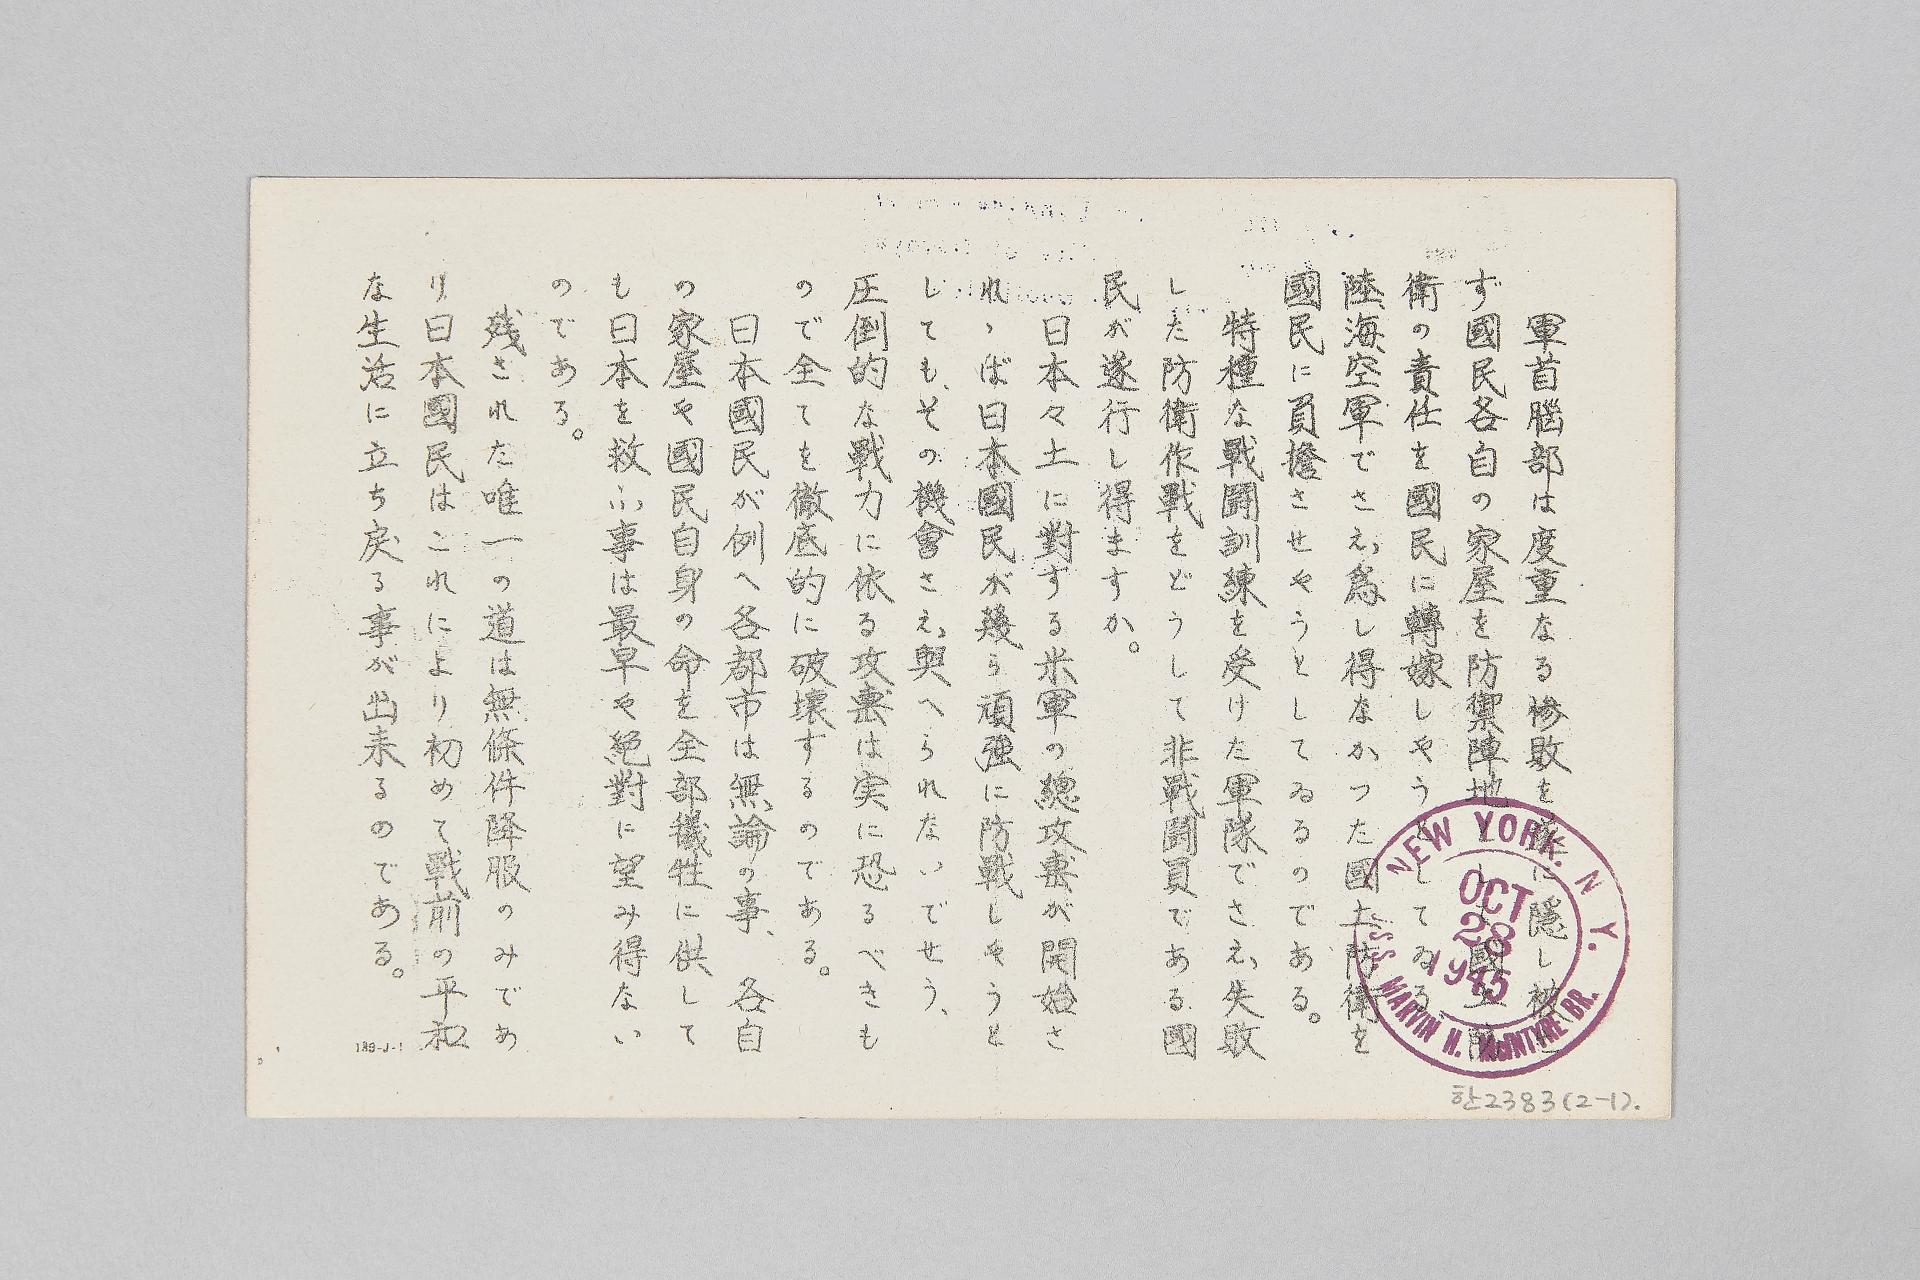 軍首腦部は度重なる慘敗を遂に隱し被せ
ず國民各自の家屋を防禦陣地として國土防
衛の責任を國民に轉嫁しやうとしてゐる
陸、海、空軍でさえ、爲し得なかつた國土防衛を
國民に負擔させやうとしてゐるのである。
特種な戰鬪訓練を受けた軍隊でさえ、失敗
した防衛作戰をどうして非戰鬪員である國
民が遂行し得ますか。
日本々土に對する米軍の總攻轟が開始さ
れゝば日本國民が幾ら頑強に防戰しやうと
しても、その機會さえ、與へられないでせう、
圧倒的な戰力に依る攻轟は実に恐るべきも
ので全てを徹底的に破壞するのである。
日本國民が例へ各都市は無論の事、各自
の家屋や國民自身の命を全部犠牲に供して
も日本を救ふ事は最早や絶對に望み得ない
のである。
殘された唯一の道は無條件降服のみであ
り日本國民はこれにより初めて戰前の平和
な生活に立ち戻る事が出来るのである。
189-J-1
NEW YORK, N.Y.
OCT
28
1945
SS MARVIN H. McINTYRE BR.
한2383(2-1).